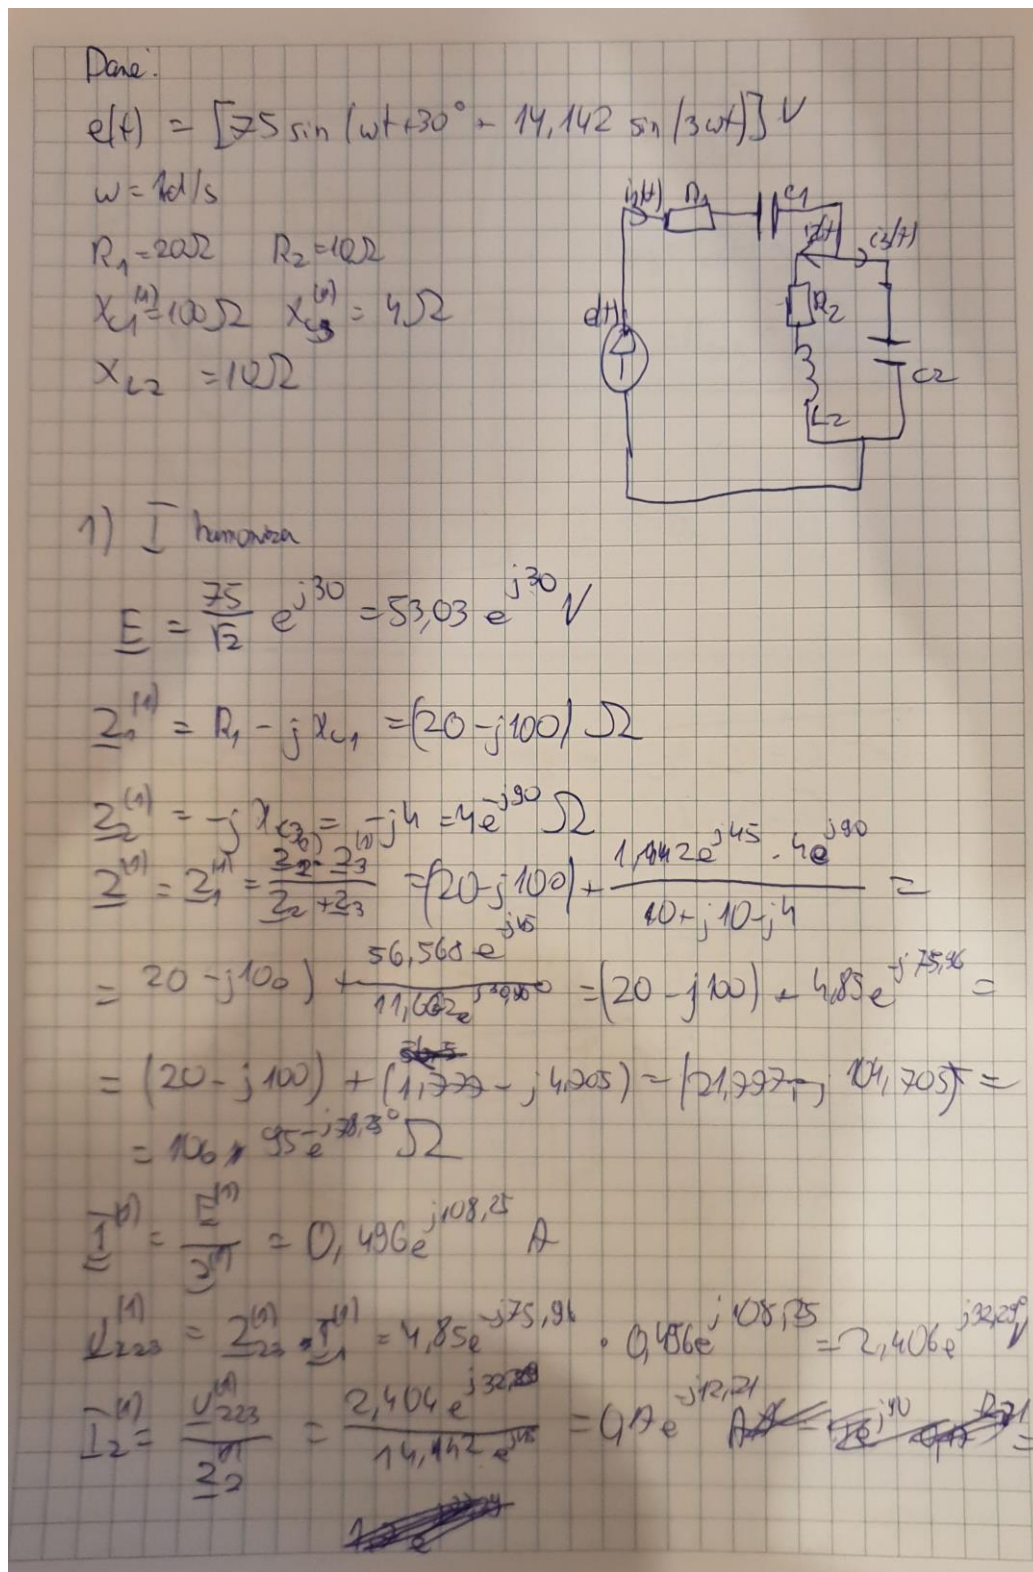 Dane:
e(t) = [75 sin (ωt+30° - 14,142 sin (3ωt)] V
ω = 1d/s
R₁=20Ω R₂=10Ω
X_C1^(1)=100Ω X_C3^(1) = 4Ω
X_L2 = 10Ω
i₁(t) R₁ C1
i2(t) i3(t)
e(t) R₂
L2 C2
1) I harmoniczna
E = 75/√2 e^j30 = 53,03 e^j30 V
Z₁^(1) = R₁ - j X_C1 = (20 - j100) Ω
Z₂^(1) = -j X_C3 = -j4 = 4e^-j90 Ω
Z^(1) = Z₁^(1) = Z₂·Z₃/Z₂+Z₃ = (20-j100) + 1,442e^j45 · 4e^j90 / 10+j10-j4 =
= 20 - j100) + 56,568 e^-j45 / 11,662e = (20 - j100) + 4,85e^-j75,96 =
= (20 - j100) + (1,777 - j4,705) = (21,797 - j 104,705) =
= 106, 95e^-j78,25° Ω
I^(1) = E^(1)/Z^(1) = 0,496e^j108,25 A
U_Z23^(1) = Z_23^(1) · I_1^(1) = 4,85e^-j75,96 · 0,496e^j108,25 = 2,406e^j32,29° V
I₂^(1) = U_Z23^(1)/Z₂^(1) = 2,404 e / 14,142 e^j45 = 0,17e^-j12,71 A =